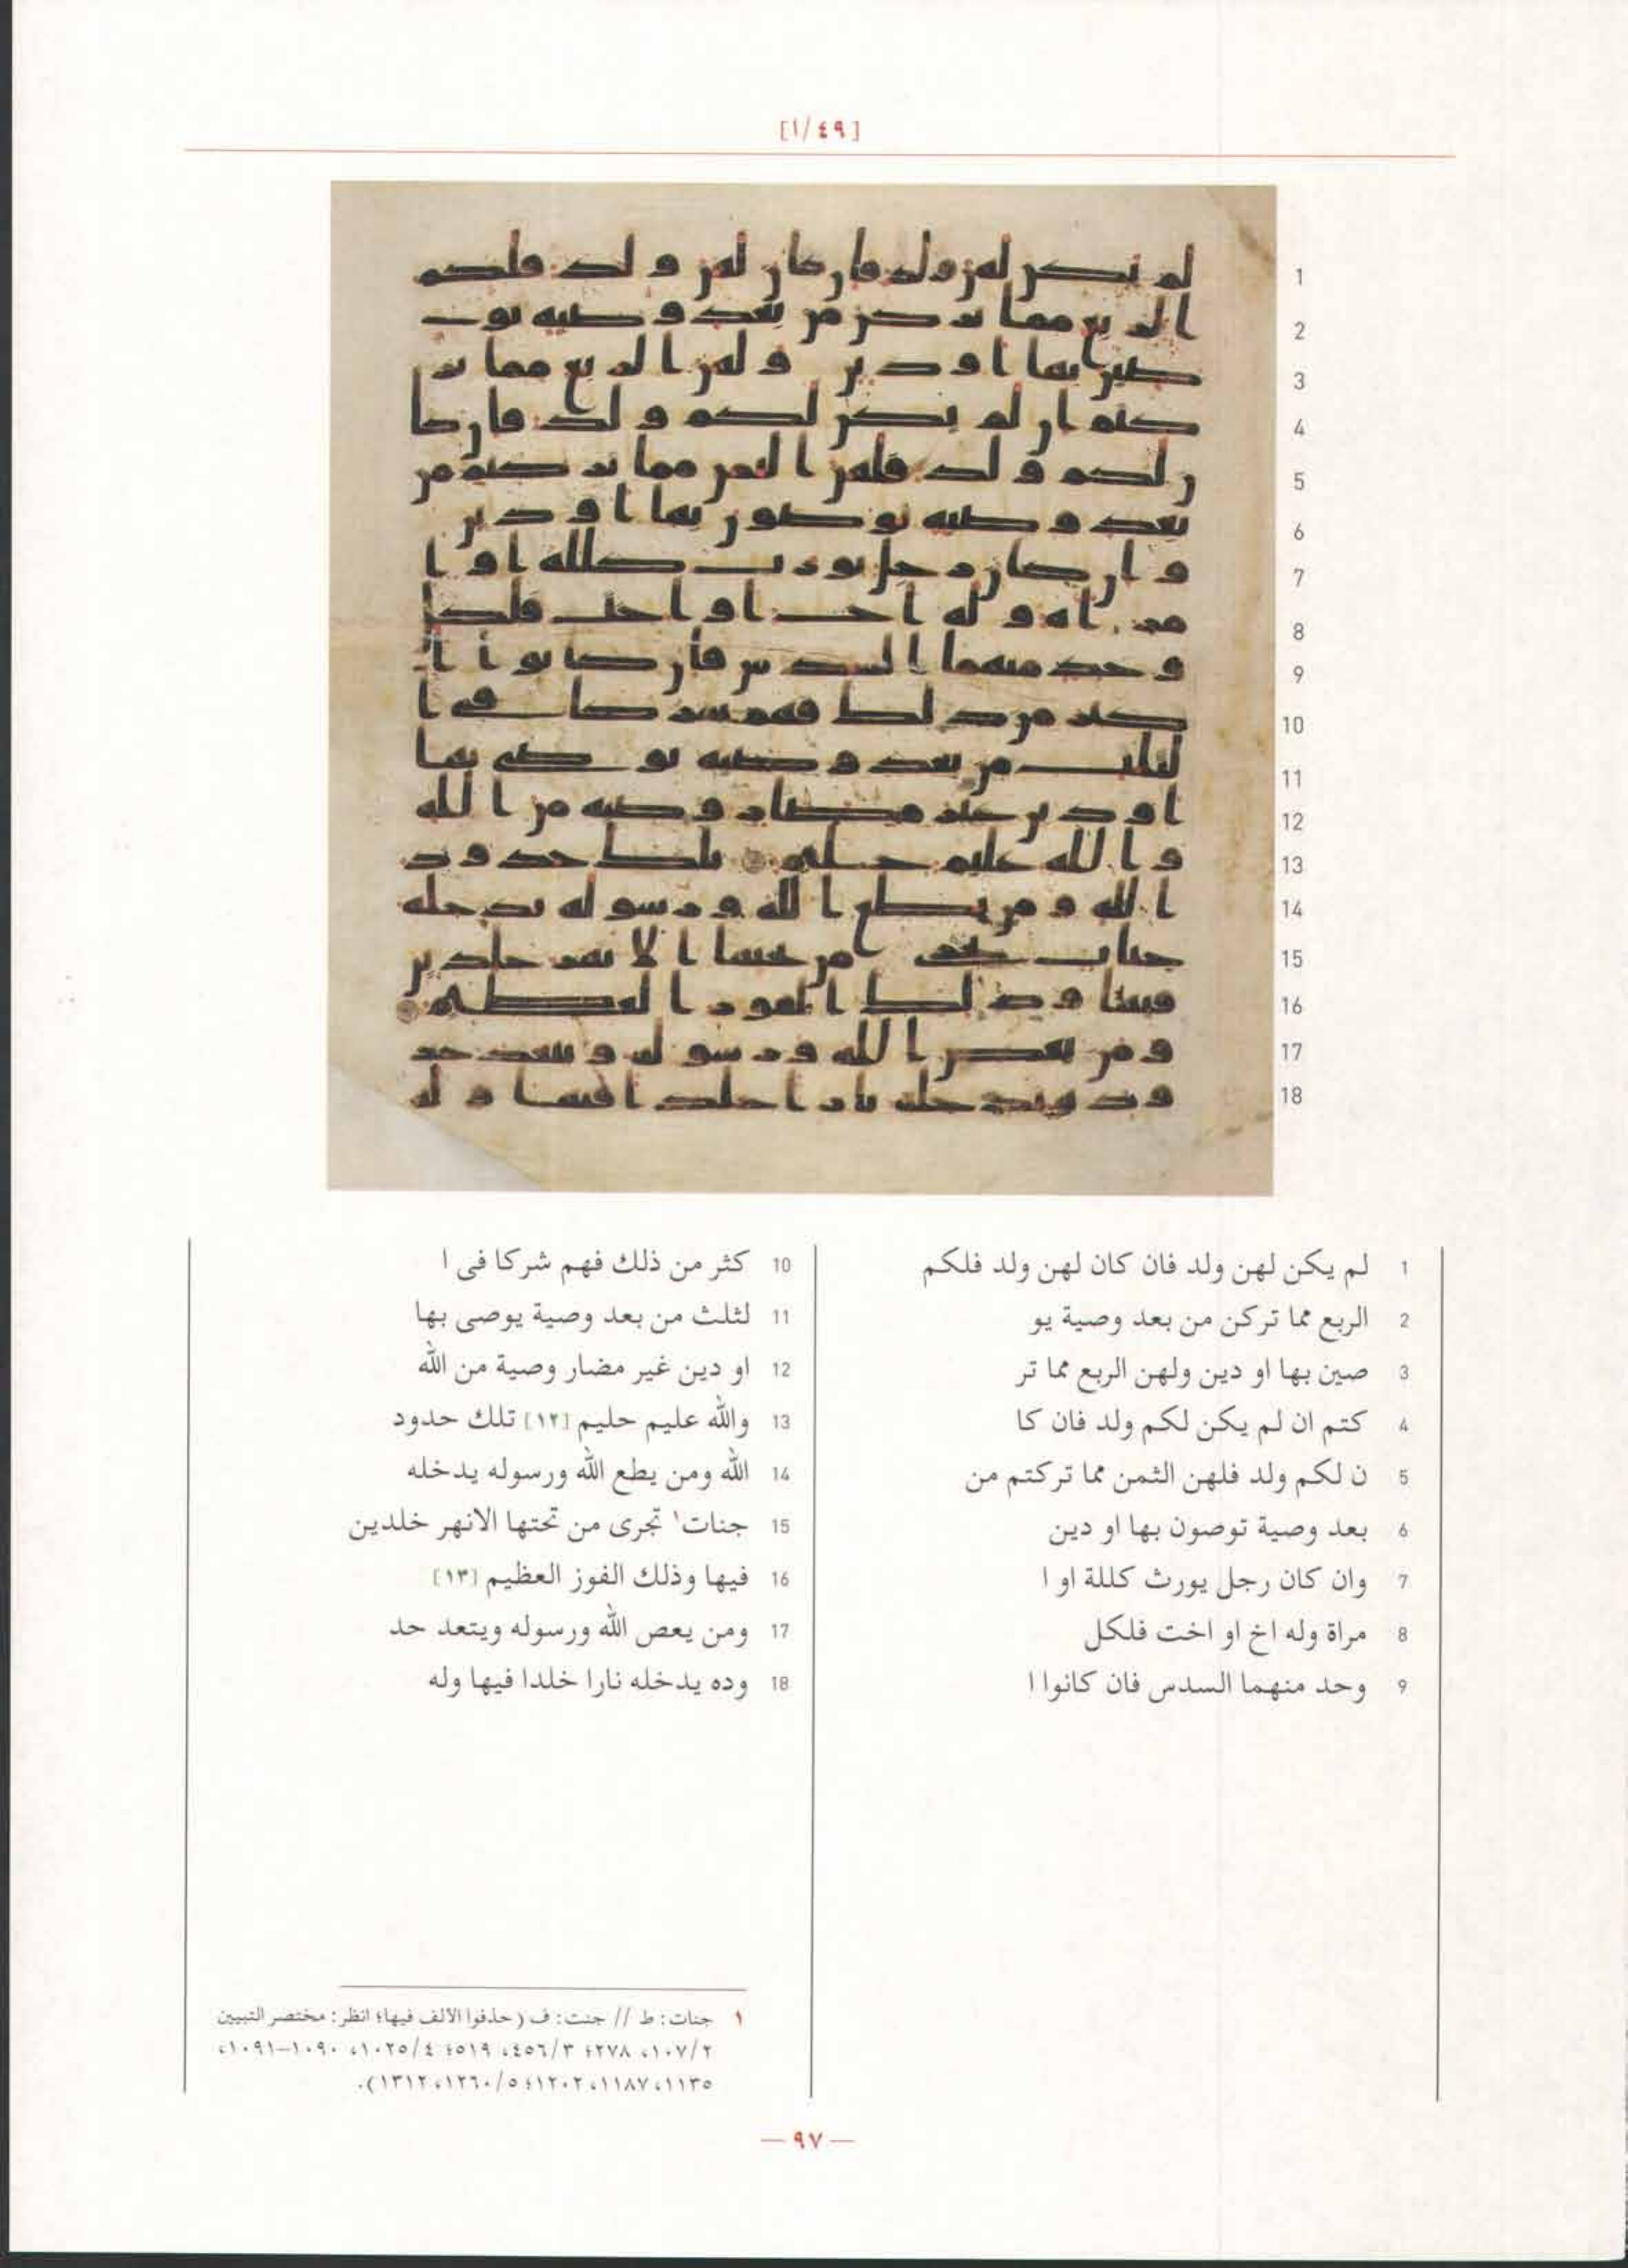 [١/٤٩]
1 لم يكن لهن ولد فان كان لهن ولد فلكم
2 الربع مما تركن من بعد وصية يو
3 صين بها او دين ولهن الربع مما تر
4 كتم ان لم يكن لكم ولد فان كا
5 ن لكم ولد فلهن الثمن مما تركتم من
6 بعد وصية توصون بها او دين
7 وان كان رجل يورث كللة او ا
8 مراة وله اخ او اخت فلكل
9 وحد منهما السدس فان كانوا ا
10 كثر من ذلك فهم شركا فى ا
11 لثلث من بعد وصية يوصى بها
12 او دين غير مضار وصية من الله
13 والله عليم حليم [١٢] تلك حدود
14 الله ومن يطع الله ورسوله يدخله
15 جنات١ تجرى من تحتها الانهر خلدين
16 فيها وذلك الفوز العظيم [١٣]
17 ومن يعص الله ورسوله ويتعد حد
18 وده يدخله نارا خلدا فيها وله
١ جنات: ط // جنت: ف (حذفوا الالف فيها؛ انظر: مختصر التبيين
٢/١٠٧، ٢٧٨؛ ٣/٤٥٦، ٥١٩؛ ٤/١٠٢٥، ١٠٩٠–١٠٩١،
١١٣٥، ١١٨٧، ١٢٠٢؛ ٥/١٢٦٠، ١٣١٢).
— ٩٧ —